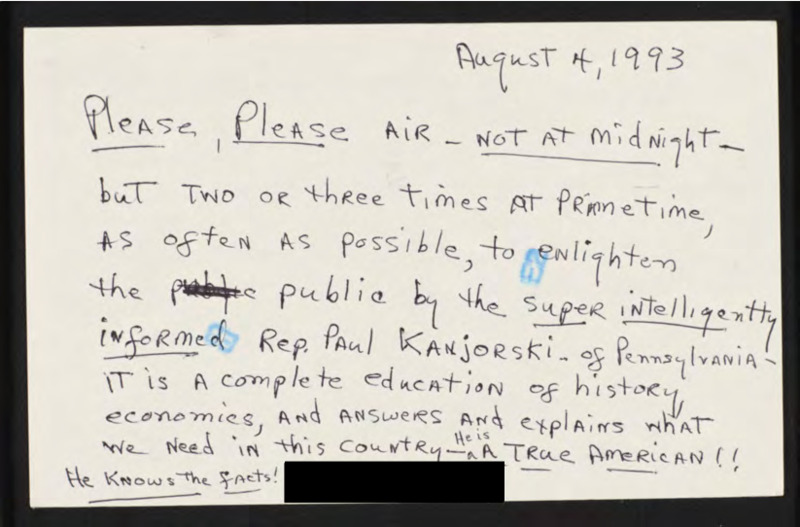 August 4, 1993
Please, Please AIR - NOT AT Midnight -
but TWO OR three times AT Primetime,
AS often AS possible, to enlighten
the public by the super intelligently
informed Rep. PAUL KANJORSKI - of Pennsylvania -
IT is A complete education of history,
economics, AND ANSWERS AND explains what
we need in this country - He is A TRUE AMERICAN!!
He KNOWS the facts!